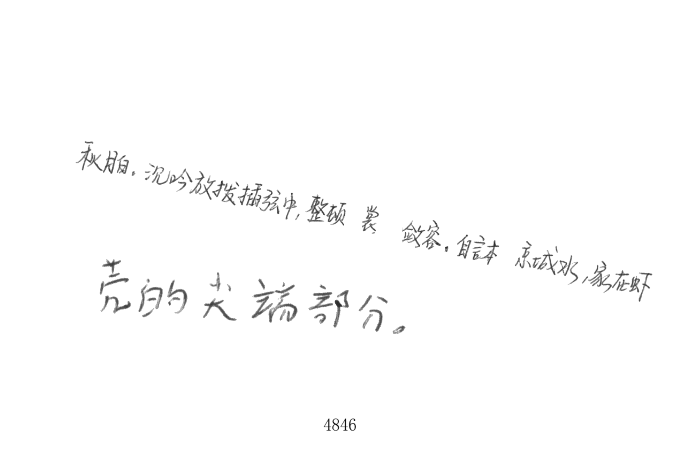 秋月白。沉吟放拨插弦中,整顿 裳 敛容。自言本 京城水,家在虾
壳的尖端部分。
4846